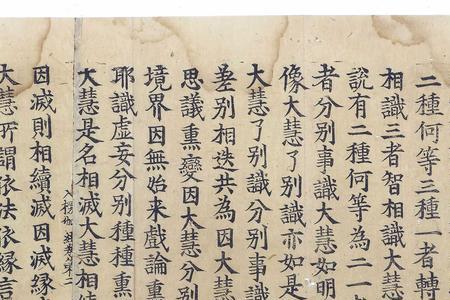 二種何等三種一者轉
相識三者智相識大慧
說有二種何等為二一
者分別事識大慧如明
像大慧了別識亦如是
大慧了別識分別事識
差別相迭共為因大慧
思議熏變因大慧分別
境界因無始来戲論熏
耶識虛妄分別種種熏
大慧是名相滅大慧相續
入楞伽經卷第二
因滅則相續滅因滅緣
大慧所謂依法依緣言